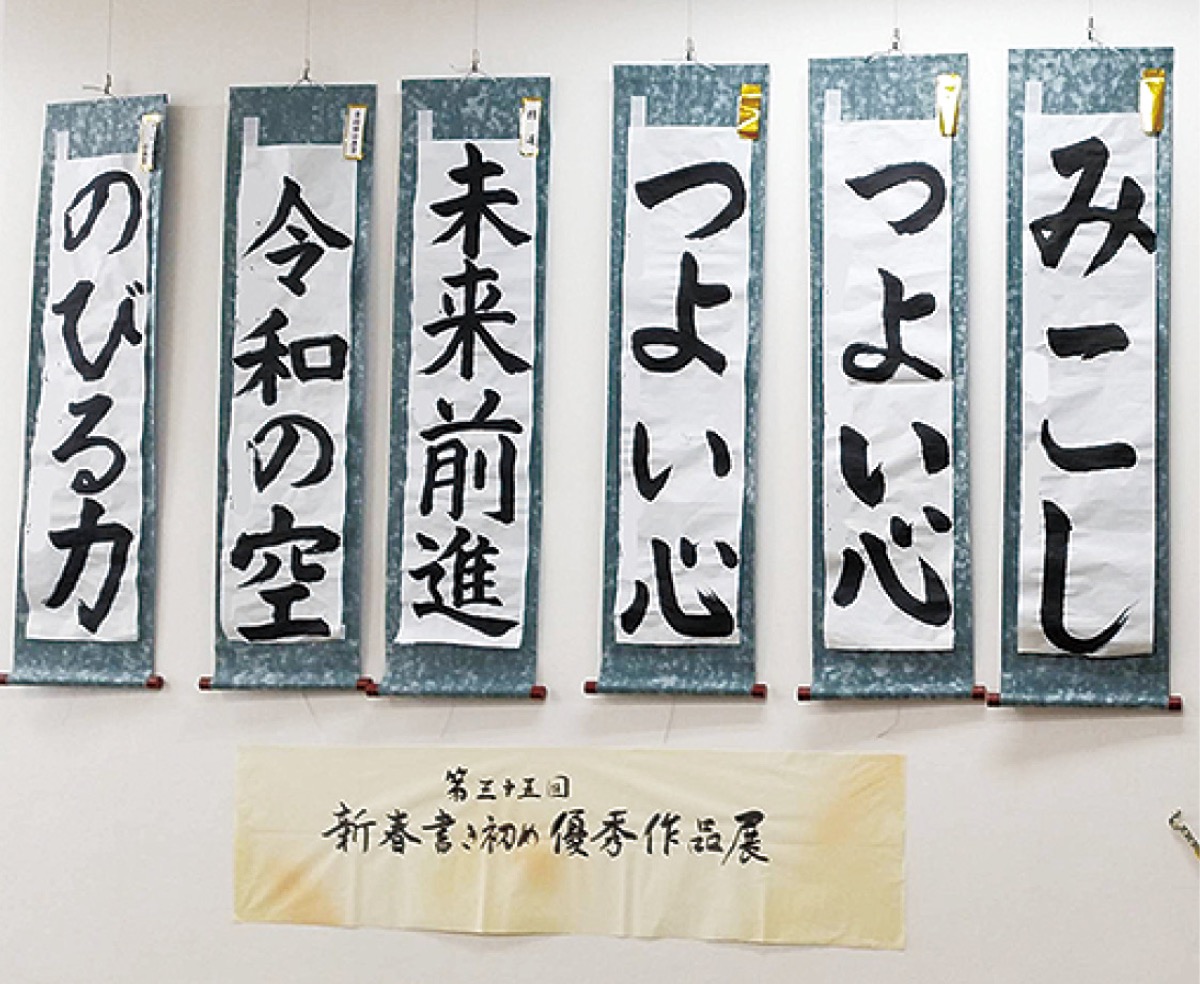 みこし
つよい心
つよい心
未来前進
令和の空
のびる力
第三十五回
新春書き初め優秀作品展